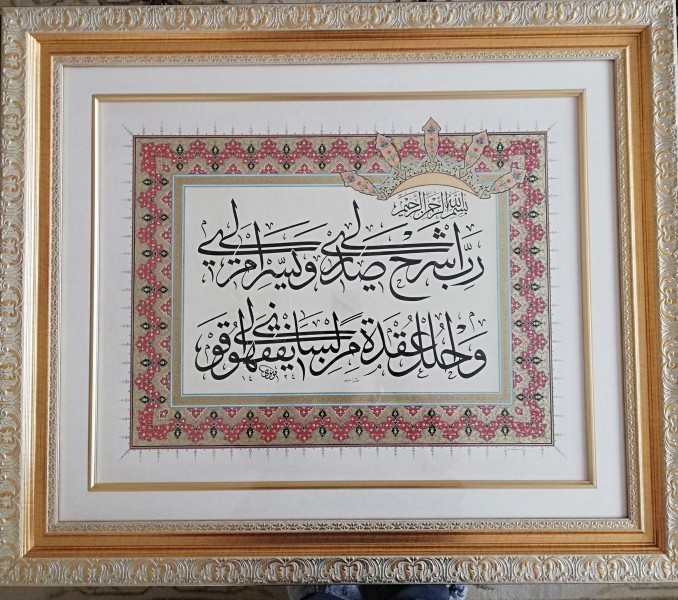 بسم الله الرحمن الرحيم
رَبِّ اشْرَحْ لي صَدْري وَيَسِّرْ لي أَمْري
وَاحْلُلْ عُقْدَةً مِنْ لِساني يَفْقَهُوا قَوْلي